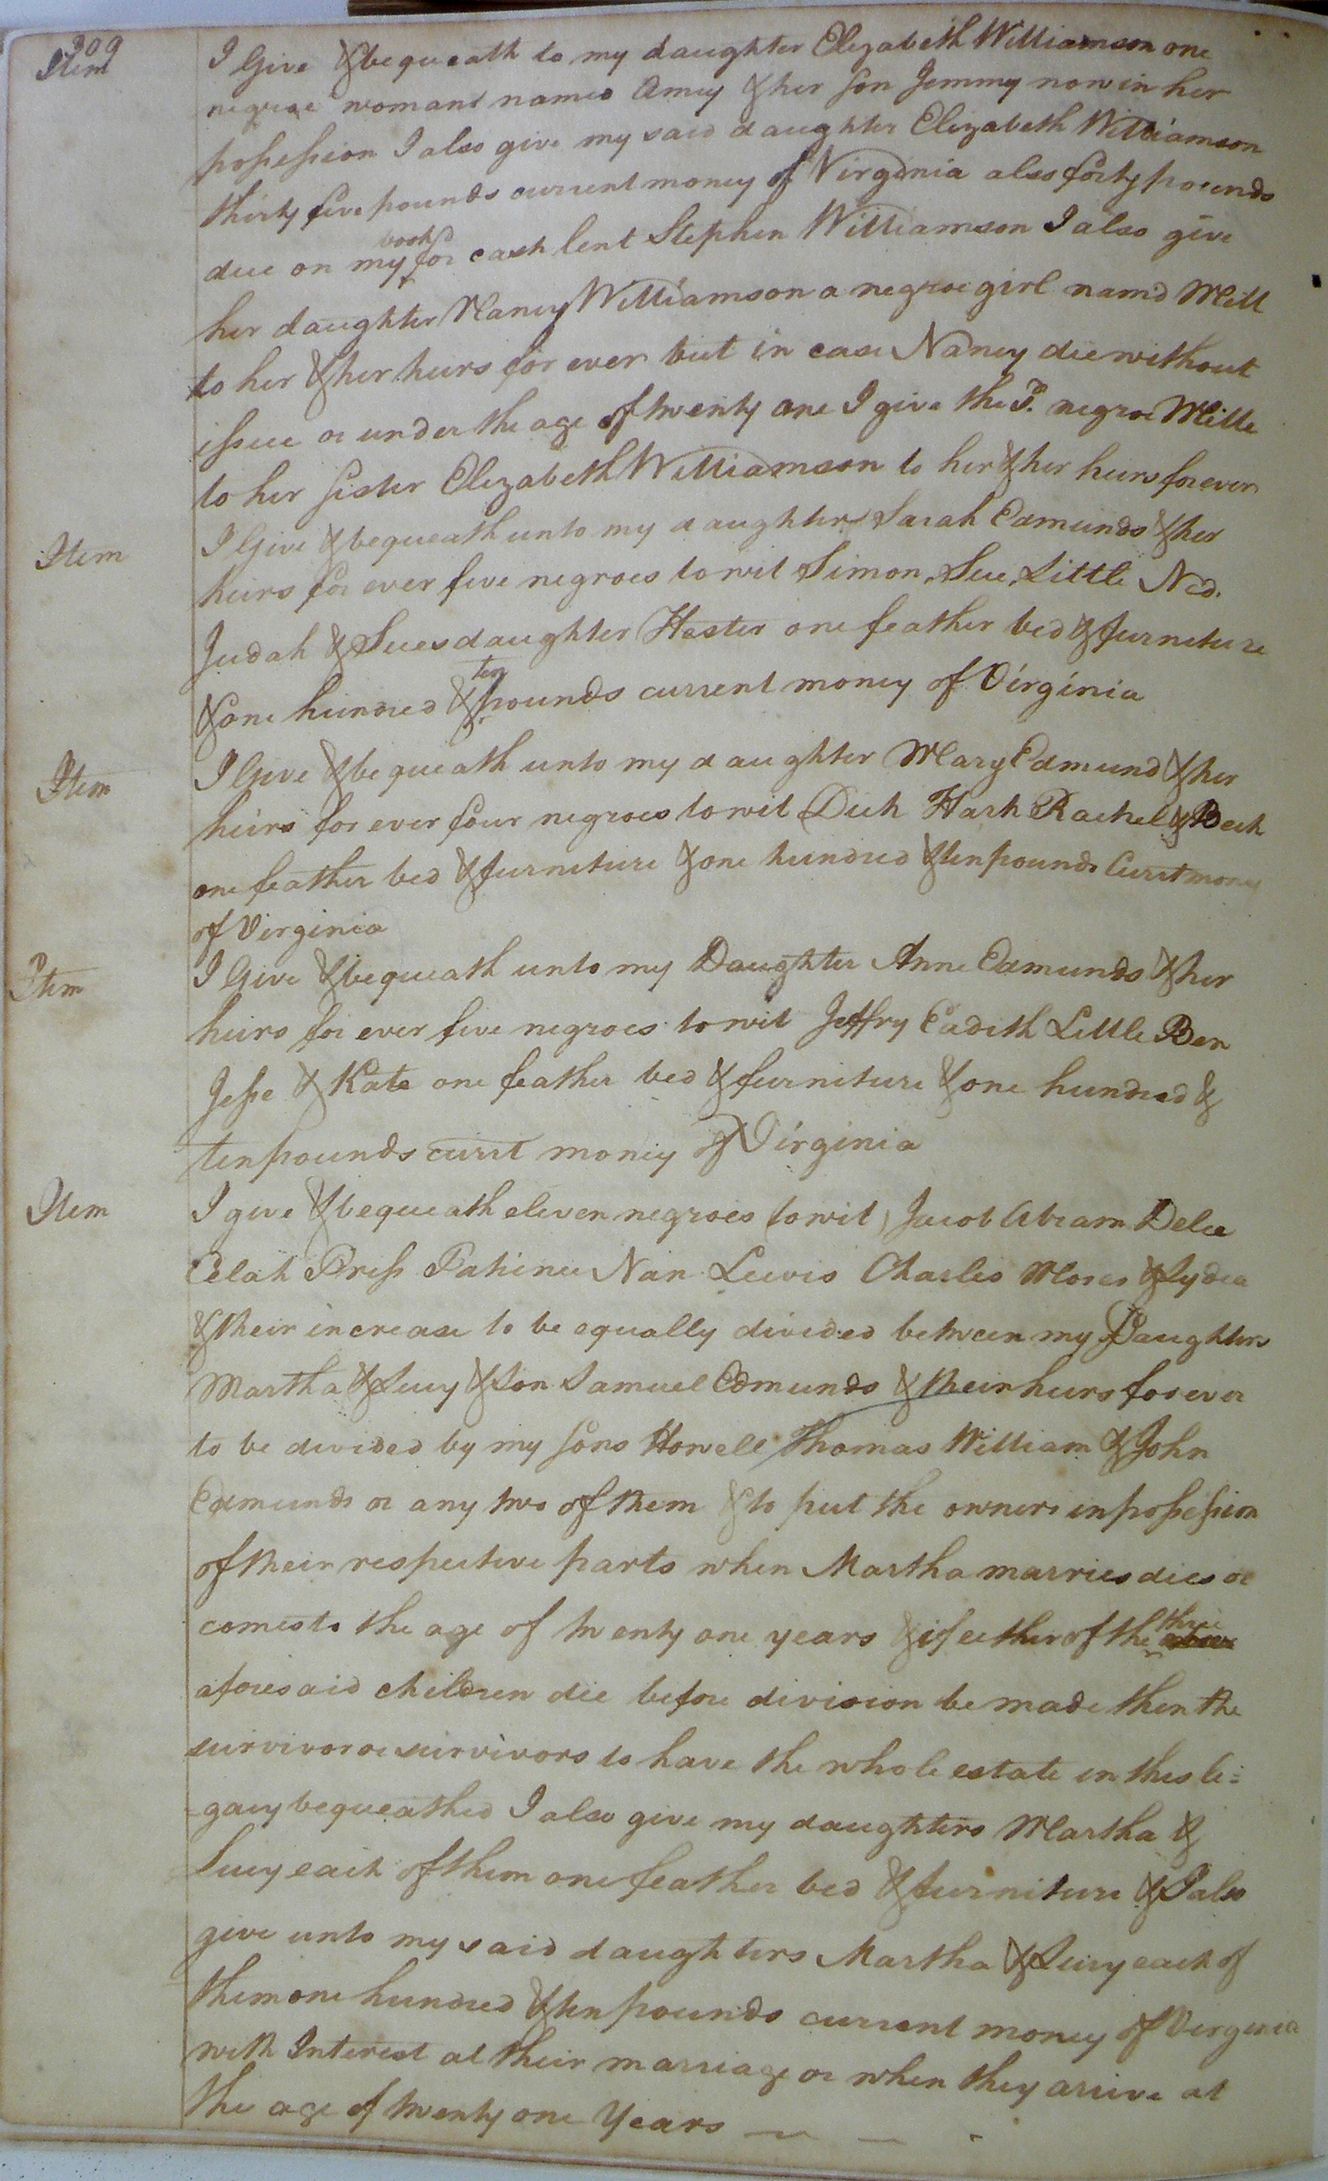 309
Item I Give & bequeath to my daughter Elizabeth Williamson one
negroe woman named Amey & her son Jemmy now in her
possession I also give my said daughter Elizabeth Williamson
thirty five pounds current money of Virginia also forty pounds
due on my book for cash lent Stephen Williamson I also give
her daughter Nancy Williamson a negroe girl namd Mill
to her & her heirs for ever but in case Nancy die without
issue or under the age of twenty one I give the sd. negroe Mille
to her sister Elizabeth Williamson to her & her heirs forever
Item I Give & bequeath unto my daughter Sarah Edmunds & her
heirs for ever five negroes to wit Simon, Sue, Little Ned.
Judah & Sues daughter Hester one feather bed & furniture
& one hundred & ten pounds current money of Virginia
Item I Give & bequeath unto my daughter Mary Edmund & her
heirs for ever four negroes to wit Dick Hark Rachel & Beck
one feather bed & furniture & one hundred & ten pounds Currt money
of Virginia
Item I Give & bequeath unto my Daughter Anne Edmunds & her
heirs for ever five negroes to wit Jeffry Eadith Little Ben
Jesse & Kate one feather bed & furniture & one hundred &
ten pounds currt money of Virginia
Item I give & bequeath eleven negroes (to wit) Jacob Abram Delce
Celah Priss Patience Nan Lewis Charles Moses & Lydia
& their increase to be equally divided between my Daughters
Martha & Lucy & Son Samuel Edmunds & their heirs forever
to be divided by my sons Howell Thomas William & John
Edmunds or any two of them & to put the owners in possession
of their respective parts when Martha marries dies or
comes to the age of twenty one years & if either of the three
aforesaid children die before division be made then the
survivor or survivors to have the whole estate in this le=
=gacy bequeathed I also give my daughters Martha &
Lucy each of them one feather bed & furniture & I also
give unto my said daughters Martha & Lucy each of
them one hundred & ten pounds current money of Virginia
with Interest at their marriage or when they arrive at
the age of twenty one Years